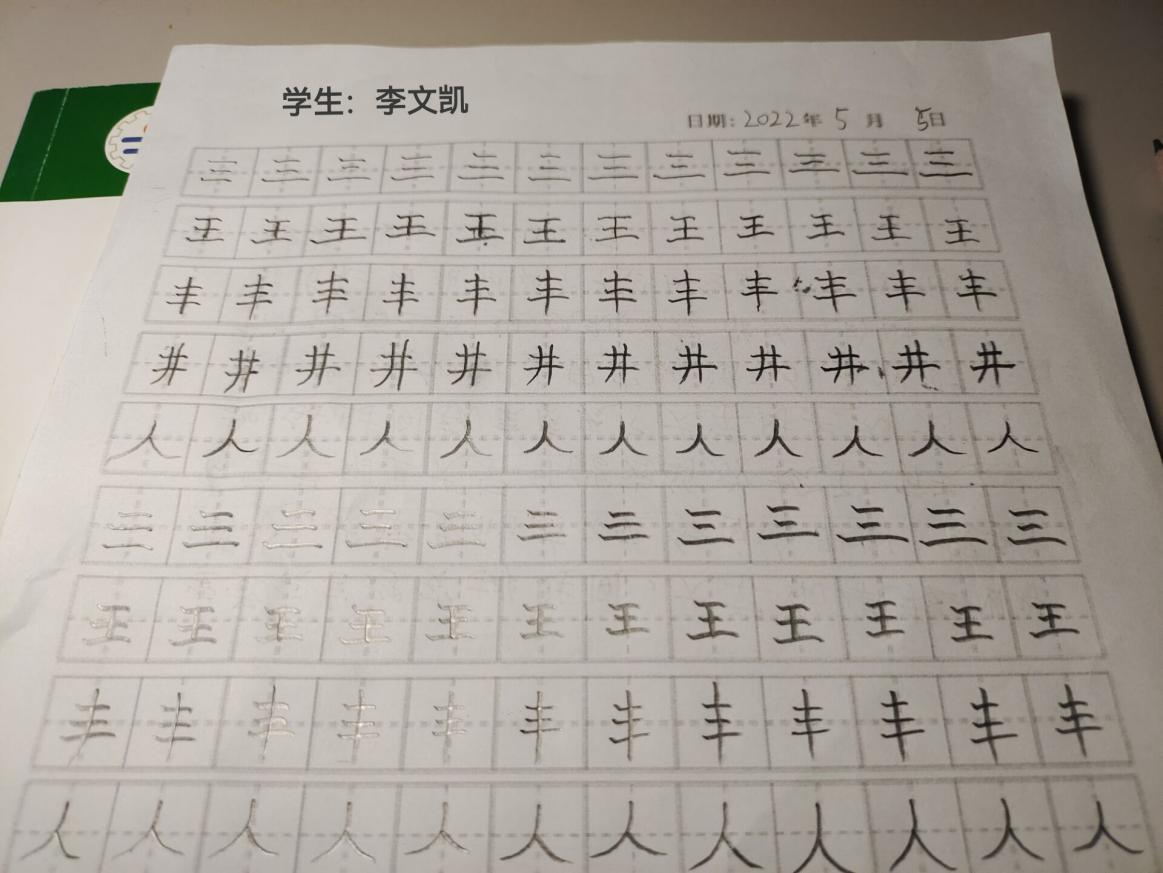 学生：李文凯
日期：2022年 5 月 5日
三三三三三三三三三三三三
王王王王王王王王王王王王
丰丰丰丰丰丰丰丰丰丰丰丰
井井井井井井井井井井井井
人人人人人人人人人人人人
三三三三三三三三三三三三
王王王王王王王王王王王王
丰丰丰丰丰丰丰丰丰丰丰丰
人人人人人人人人人人人人